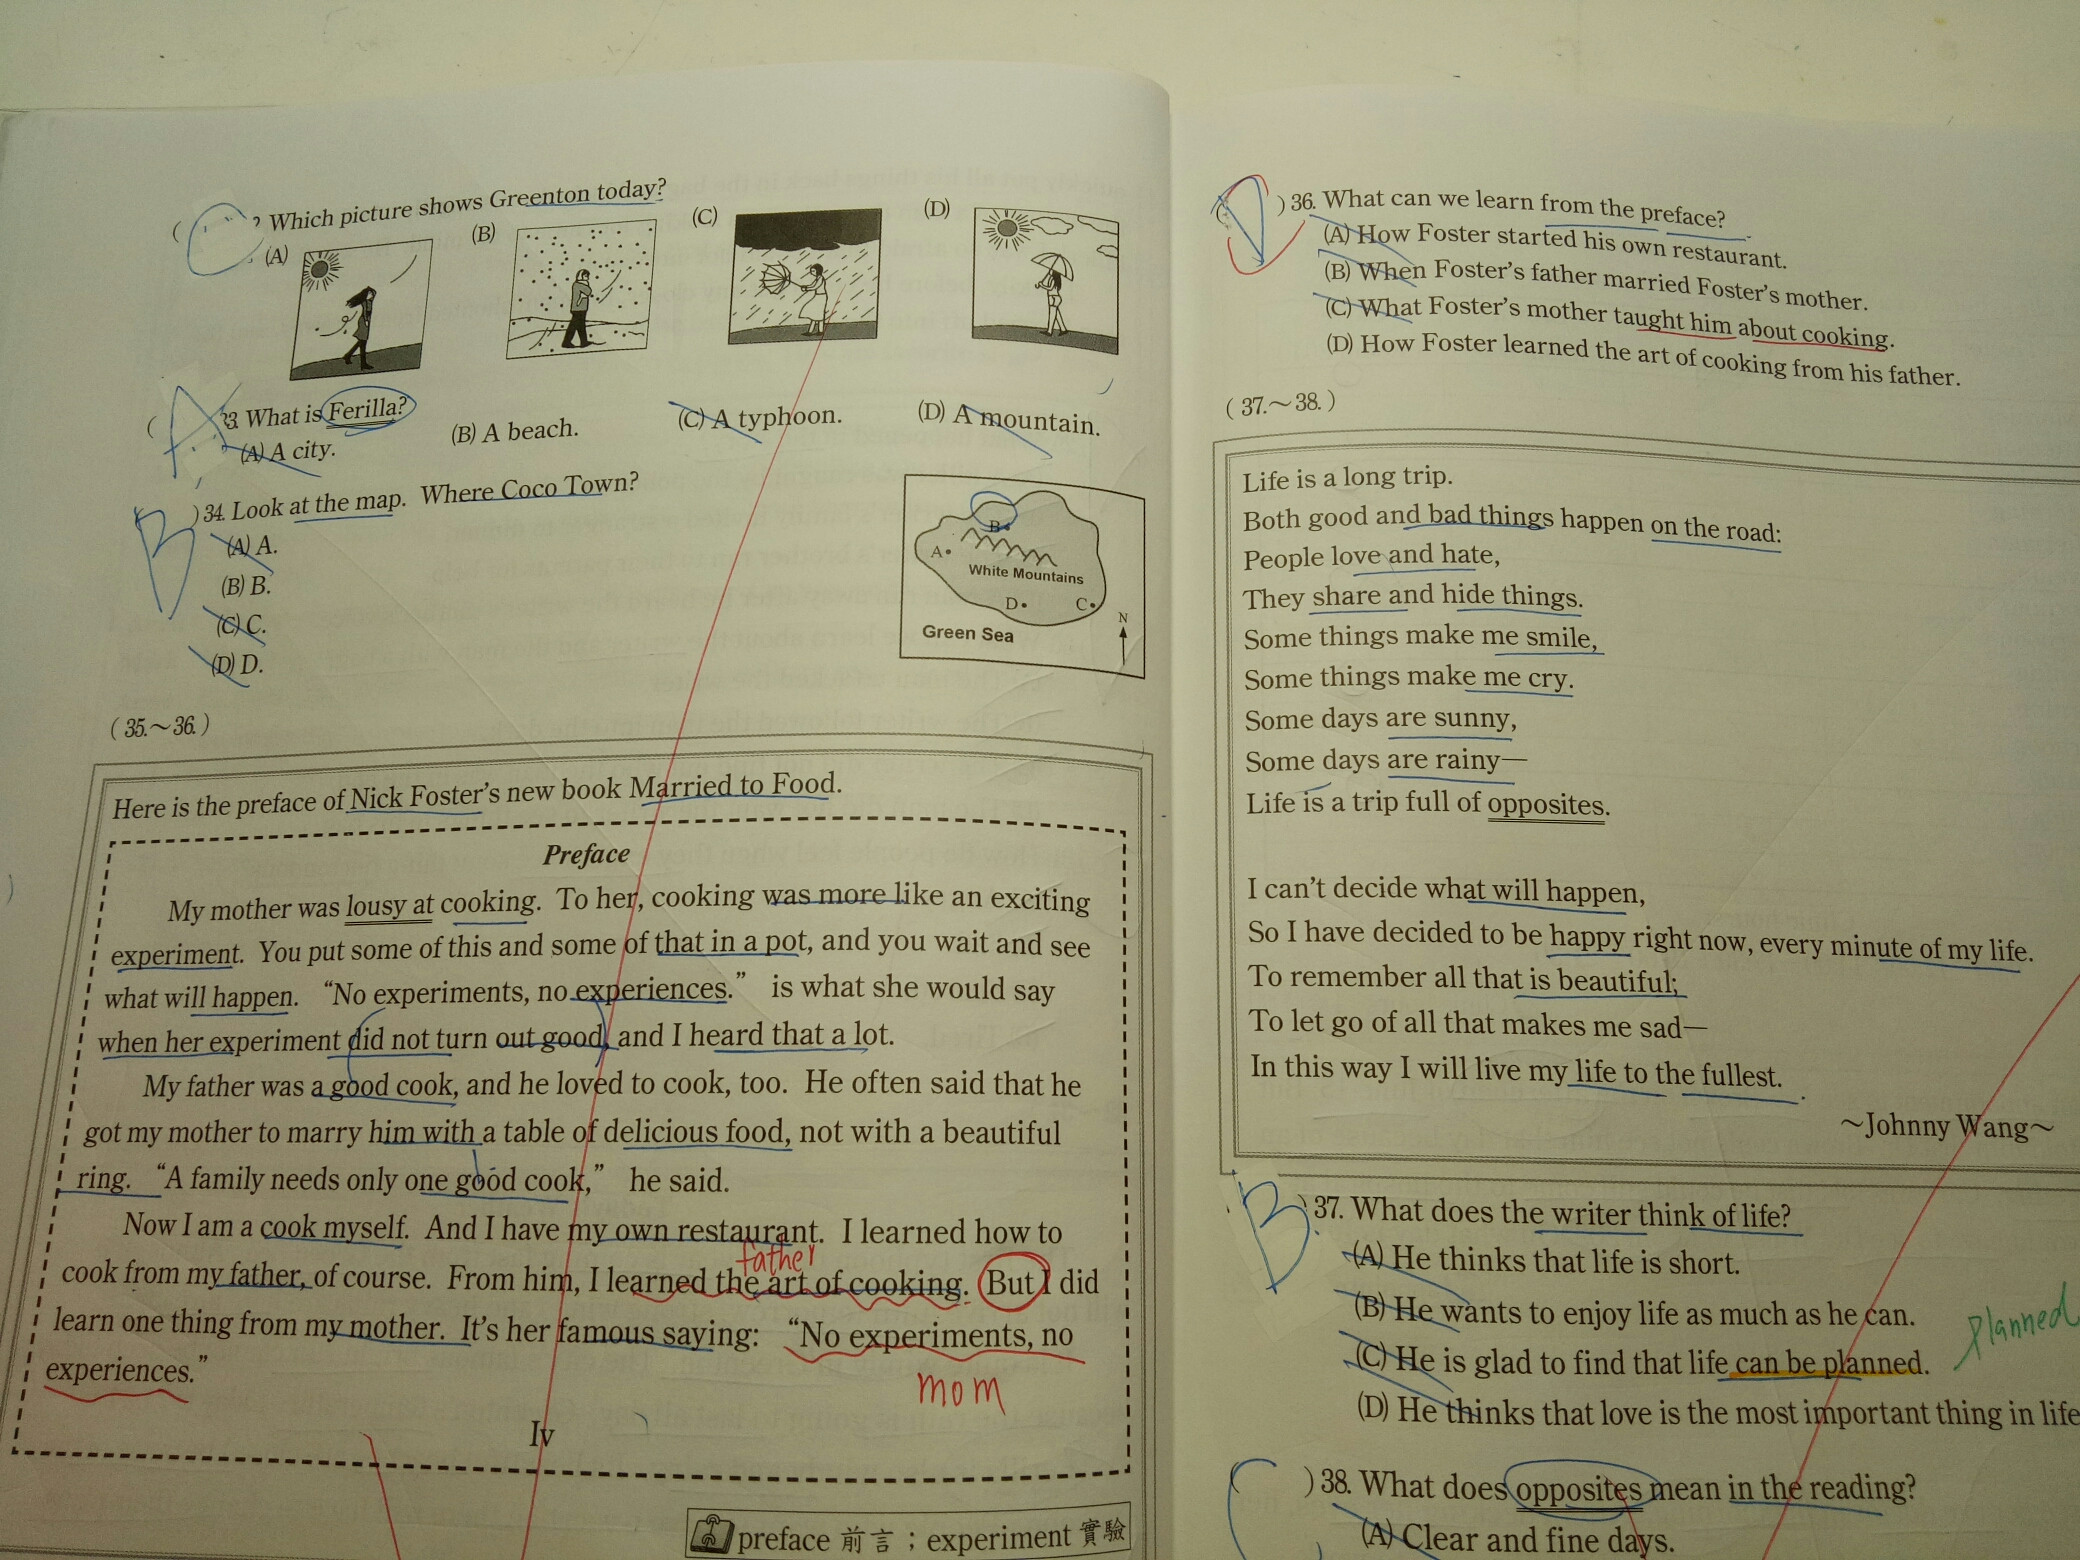 Which picture shows Greenton today?
(A)
(B)
(C)
(D)
C
A
33. What is Ferilla?
(A) A city.
(B) A beach.
(C) A typhoon.
(D) A mountain.
B
)34. Look at the map. Where Coco Town?
(A) A.
(B) B.
(C) C.
(D) D.
B
A
White Mountains
D
C
Green Sea
N
( 35.~36. )
Here is the preface of Nick Foster's new book Married to Food.
Preface
My mother was lousy at cooking. To her, cooking was more like an exciting
experiment. You put some of this and some of that in a pot, and you wait and see
what will happen. “No experiments, no experiences.” is what she would say
when her experiment did not turn out good, and I heard that a lot.
My father was a good cook, and he loved to cook, too. He often said that he
got my mother to marry him with a table of delicious food, not with a beautiful
ring. “A family needs only one good cook,” he said.
Now I am a cook myself. And I have my own restaurant. I learned how to
father
cook from my father, of course. From him, I learned the art of cooking. But I did
learn one thing from my mother. It's her famous saying: “No experiments, no
experiences.”
mom
Iv
preface 前言；experiment 實驗
D
)36. What can we learn from the preface?
(A) How Foster started his own restaurant.
(B) When Foster's father married Foster's mother.
(C) What Foster's mother taught him about cooking.
(D) How Foster learned the art of cooking from his father.
( 37.~38. )
Life is a long trip.
Both good and bad things happen on the road:
People love and hate,
They share and hide things.
Some things make me smile,
Some things make me cry.
Some days are sunny,
Some days are rainy—
Life is a trip full of opposites.
I can't decide what will happen,
So I have decided to be happy right now, every minute of my life.
To remember all that is beautiful;
To let go of all that makes me sad—
In this way I will live my life to the fullest.
~Johnny Wang~
B
)37. What does the writer think of life?
(A) He thinks that life is short.
(B) He wants to enjoy life as much as he can.
(C) He is glad to find that life can be planned.
planned
(D) He thinks that love is the most important thing in life
C
)38. What does opposites mean in the reading?
(A) Clear and fine days.